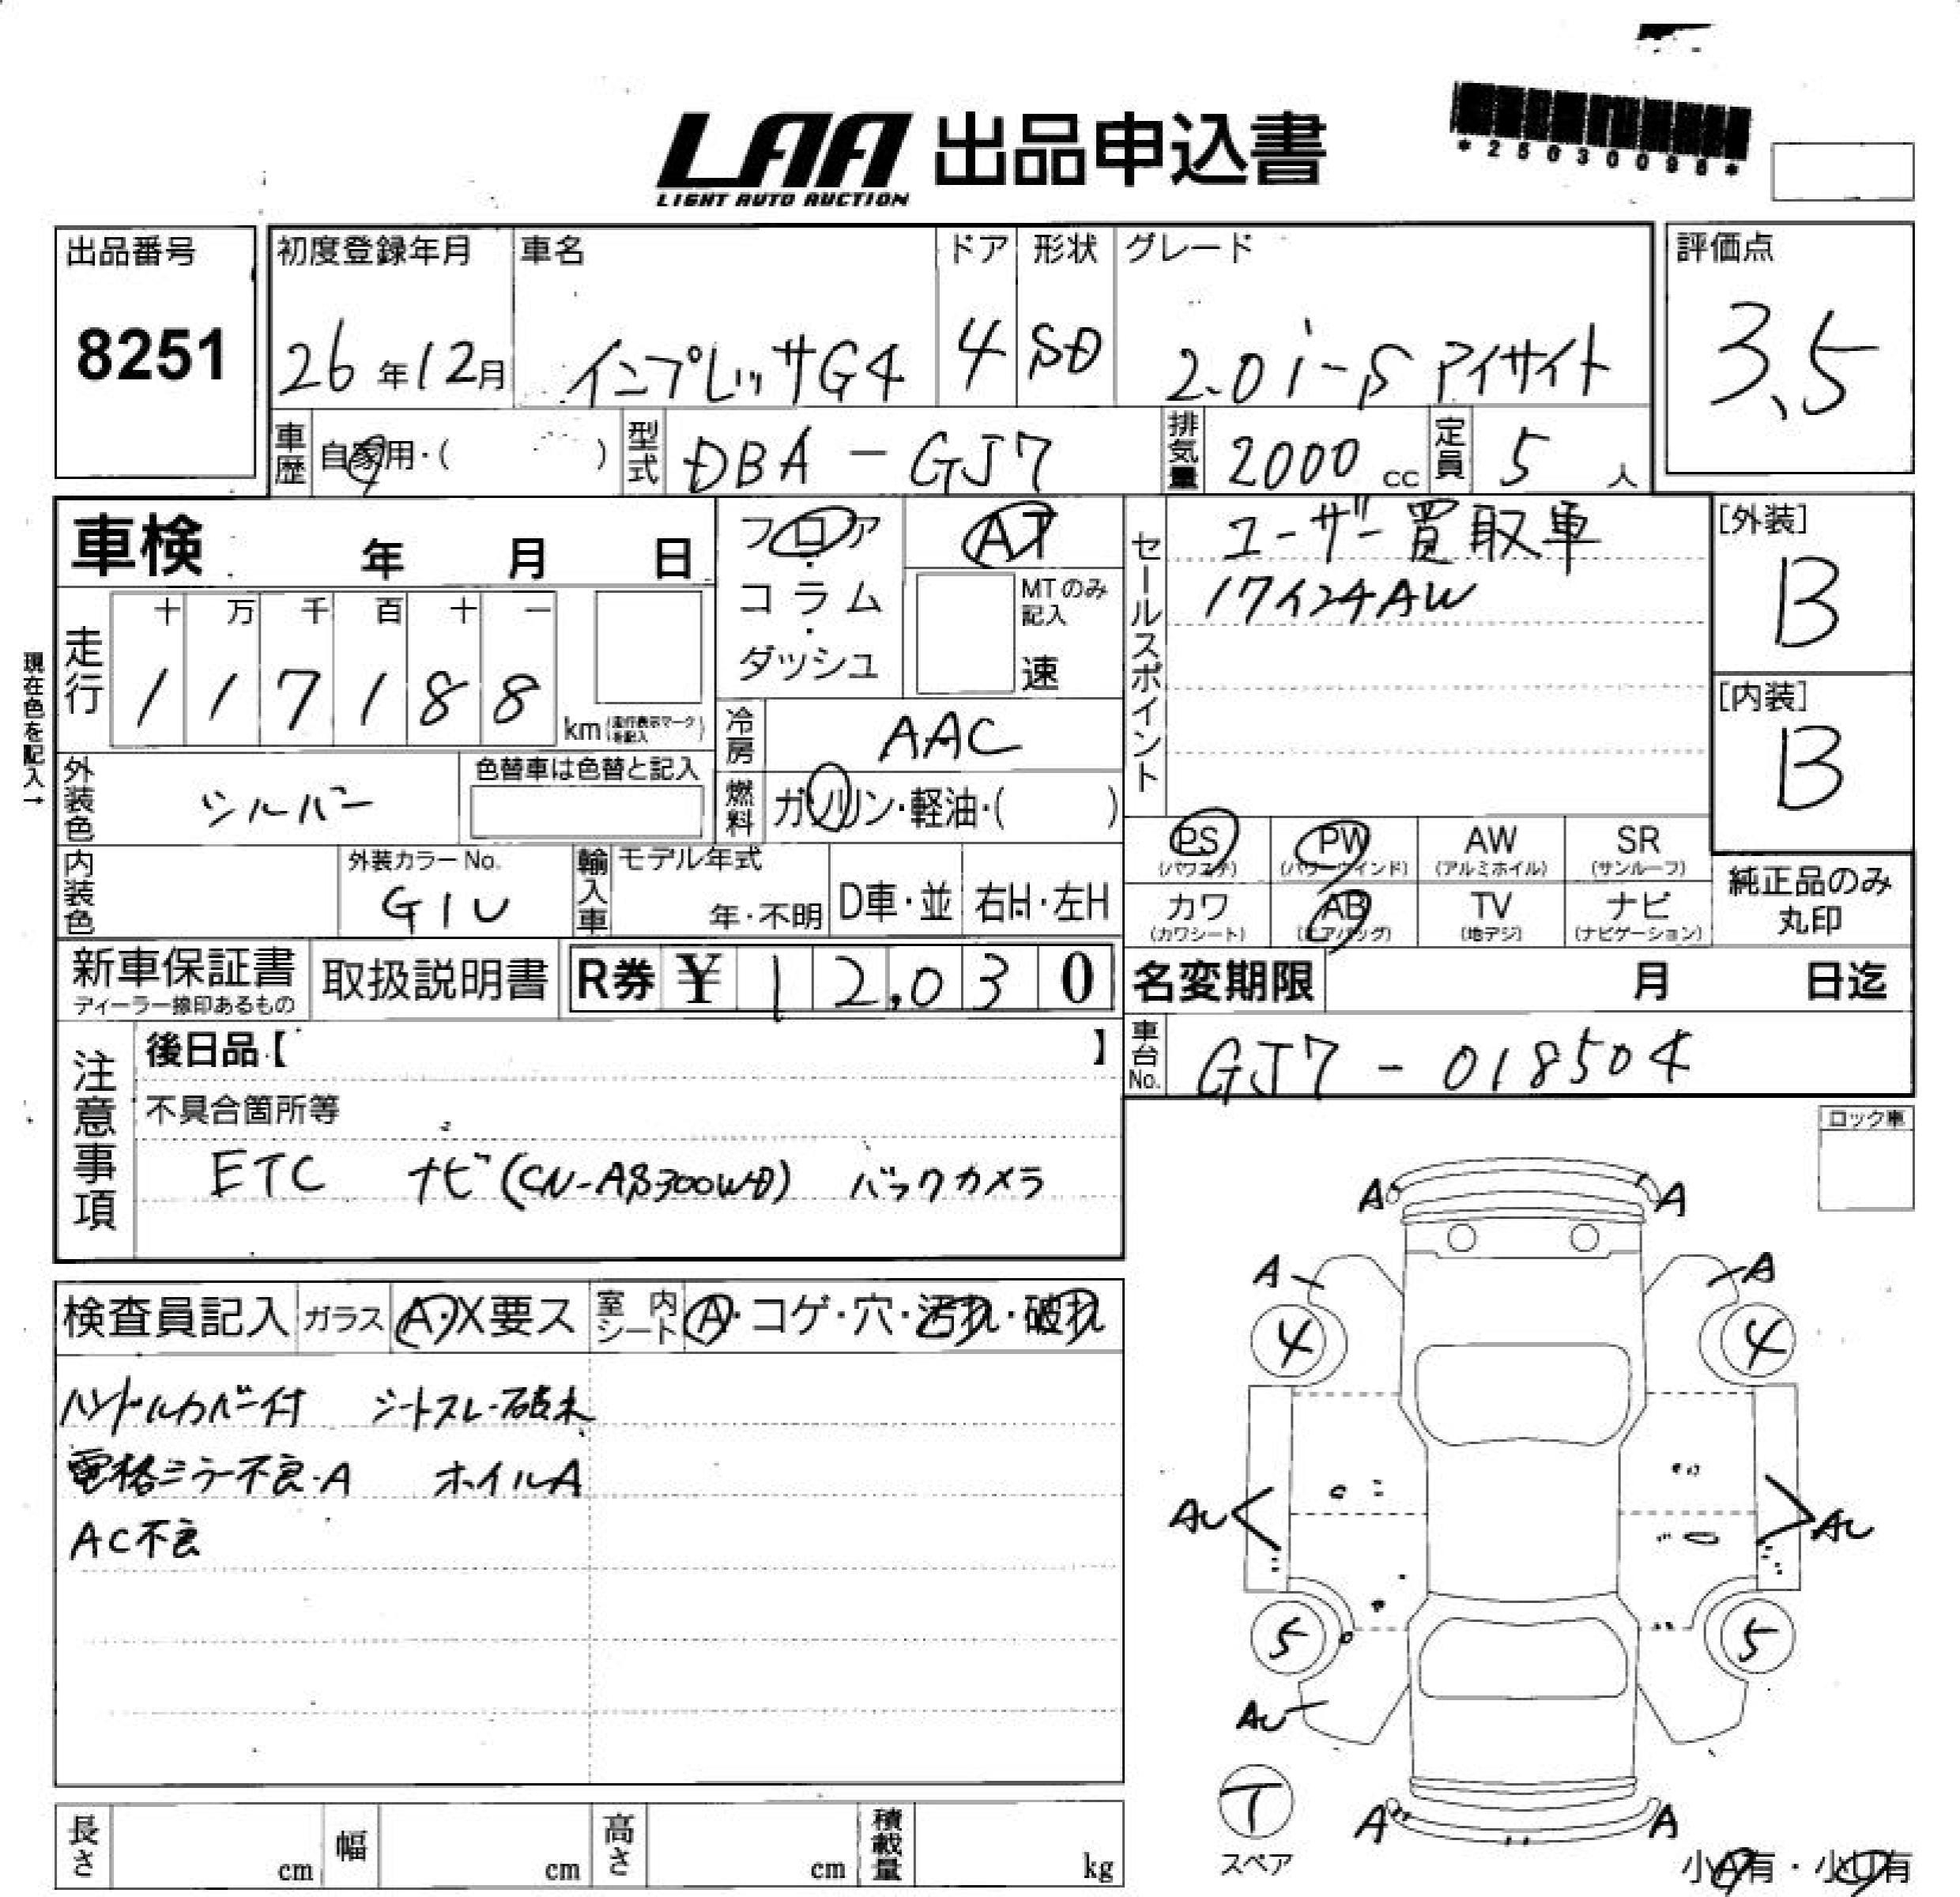 LAA 出品申込書
LIGHT AUTO AUCTION
*25030096*
出品番号
8251
初度登録年月
26年12月
車名
インプレッサG4
ドア
4
形状
SD
グレード
2.0i-S アイサイト
評価点
3.5
車歴 自家用・( )
型式 DBA-GJ7
排気量 2000 cc
定員 5 人
車検 年 月 日
フロア・コラム・ダッシュ
AT
MTのみ記入
速
セールスポイント
ユーザー買取車
17インチAW
[外装]
B
[内装]
B
現在色を記入→
走行
十 万 千 百 十 一
1 1 7 1 8 8 km (走行表示マークを記入)
冷房 AAC
外装色 シルバー
色替車は色替と記入
燃料 ガソリン・軽油・( )
内装色
外装カラーNo.
G1U
輸入車
モデル年式
年・不明
D車・並
右H・左H
PS (パワステ)
PW (パワーウインド)
AW (アルミホイル)
SR (サンルーフ)
カワ (カワシート)
AB (エアバッグ)
TV (地デジ)
ナビ (ナビゲーション)
純正品のみ丸印
新車保証書
ディーラー捺印あるもの
取扱説明書
R券 ¥ 12,030
名変期限 月 日迄
車台No. GJ7-018504
注意事項
後日品【 】
不具合箇所等
ETC ナビ(CN-AS300WD) バックカメラ
ロック車
検査員記入
ガラス A・X要ス
室内シート A・コゲ・穴・汚れ・破れ
ハンドルカバー付 シートスレ・破れ
電格ミラー不良・A ホイルA
AC不良
A A
A A
4 4
AU AU
5 5
AU
T
スペア
A A
小A有・小U有
長さ cm
幅 cm
高さ cm
積載量 kg